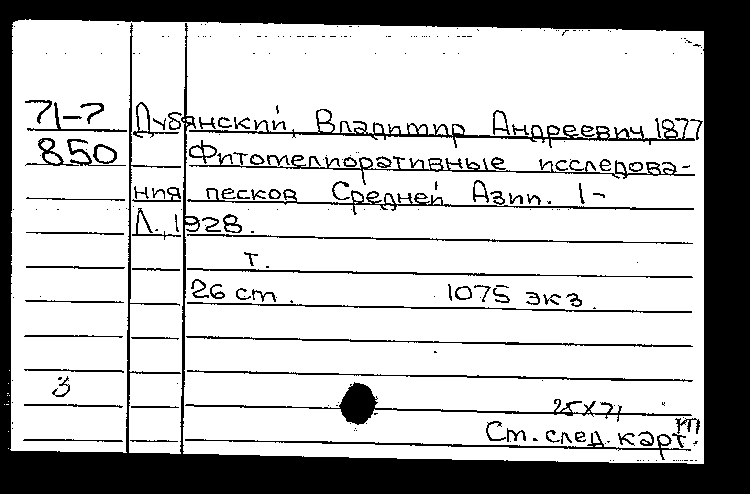 71-7 Дубянский, Владимир Андреевич, 1877
850 Фитомелиоративные исследова-
ния песков Средней Азии. 1-
Л., 1928.
т.
26 cm. 1075 экз.
3
25 X 71
Ст. след. карт.